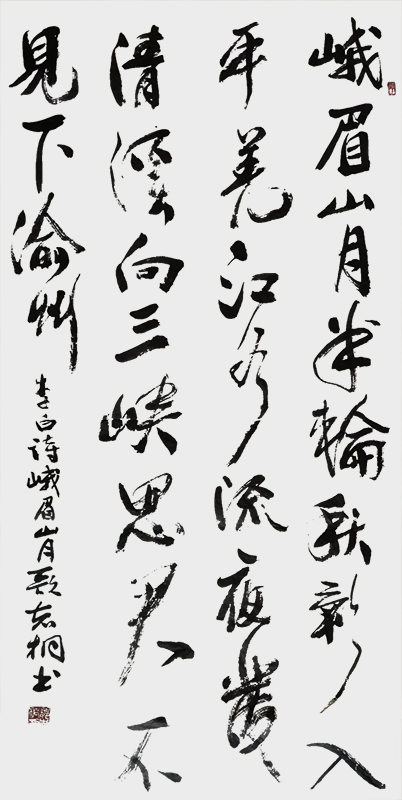 峨眉山月半輪秋影入
平羌江水流夜發
清溪向三峽思君不
見下渝州
李白诗峨眉山月歌志桐书